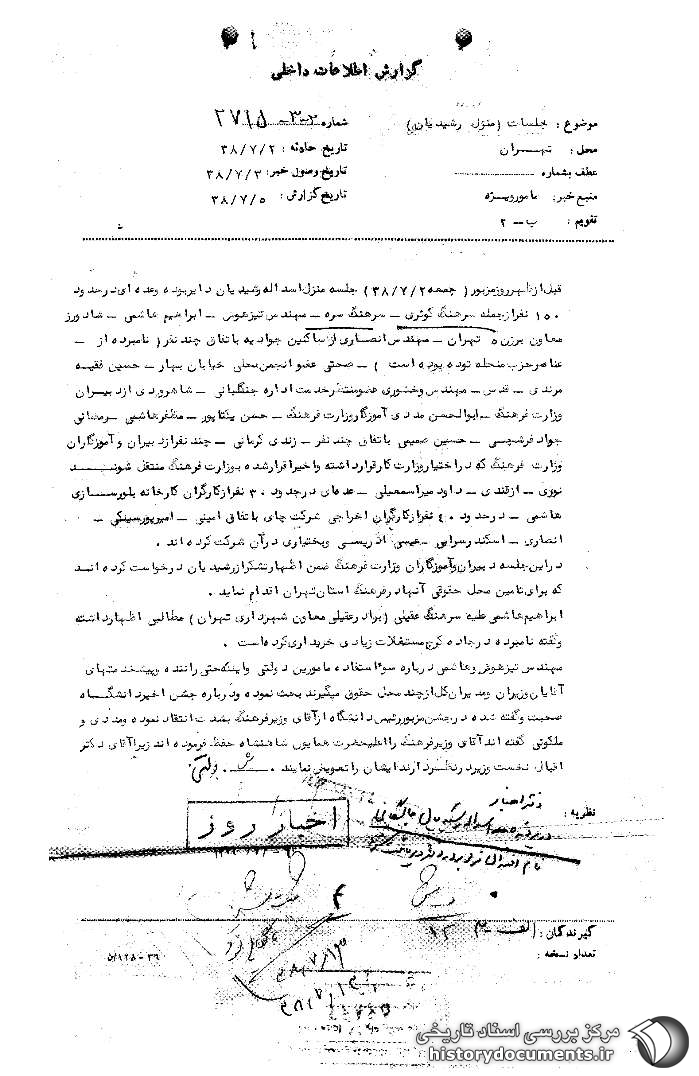 گزارش اطلاعات داخلی
موضوع : جلسات (منزل رشیدیان)
محل : تهران
عطف بشماره
منبع خبر : مامور ویژه
تقویم : ب - ۲
شماره
تاریخ حادثه : ۳۸/۷/۲
تاریخ وصول خبر : ۳۸/۷/۳
تاریخ گزارش : ۳۸/۷/۵
قبل از ظهر روز مزبور ( جمعه ۳۸/۷/۲ ) جلسه منزل اسداله رشیدیان دایر بوده و عده ای در حدود
۱۵۰ نفر از جمله سرهنگ کوثری - سرهنگ سره - مهندس تیزهوش - ابراهیم هاشمی - شادورز
معاون برزن ۵ تهران - مهندس انصاری از ساکنین جوادیه باتفاق چند نفر ( نامبرده از
عناصر حزب منحله توده بوده است ) - صحتی عضو انجمن محلی خیابان بهار - حسین فقیه
مرندی - قدس - مهندس وخشوری عضو منتظر خدمت اداره جنگلبانی - شاهرودی از دبیران
وزارت فرهنگ - ابوالحسن مددی آموزگار وزارت فرهنگ - حسن یکتاپور - مظفر هاشمی - رمضانی
جواد فرشچی - حسین صمیمی باتفاق چند نفر - زندی کرمانی - چند نفر از دبیران و آموزگاران
وزارت فرهنگ که در اختیار وزارت کار قرار داشته و اخیرا قرار شده بوزارت فرهنگ منتقل شوند
نوری - ازقندی - داود میراسمعیلی - عده ای در حدود ۳۰ نفر از کارگران کارخانه بلورسازی
هاشمی - در حدود ۴۰ نفر از کارگران اخراجی شرکت چای باتفاق امینی - امیر پورسینکی -
انصاری - اسکندر رسرابی - عیسی اذریسی و بختیاری در آن شرکت کرده اند .
در این جلسه دبیران و آموزگاران وزارت فرهنگ ضمن اظهار تشکر از رشیدیان درخواست کرده اند
که برای تامین محل حقوقی آنها در فرهنگ استان تهران اقدام نماید .
ابراهیم هاشمی علیه سرهنگ عقیلی ( برادر عقیلی معاون شهرداری تهران ) مطالبی اظهار داشته
و گفته نامبرده در جاده کرج مستغلات زیادی خریداری کرده است .
مهندس تیزهوش و هاشمی درباره سوء استفاده مامورین دولتی و اینکه حتی راننده و پیشخدمتهای
آقایان وزیران و مدیران کل از چند محل حقوق میگیرند بحث نموده و درباره جشن اخیر دانشگاه
صحبت و گفته شده در جشن مزبور رئیس دانشگاه از آقای وزیر فرهنگ بشدت انتقاد نموده و مددی و
ملکوتی گفته اند آقای وزیر فرهنگ را اعلیحضرت همایون شاهنشاه حفظ فرموده اند زیرا آقای دکتر
اقبال نخست وزیر در نظر دارند ایشان را تعویض نمایند .
نظریه :
دفتر اخبار
اخبار روز
گیرندگان : الف
تعداد نسخه :
۵/۱۲۸-۳۶
۳۸/۷/۱۳
مرکز بررسی اسناد تاریخی
historydocuments.ir